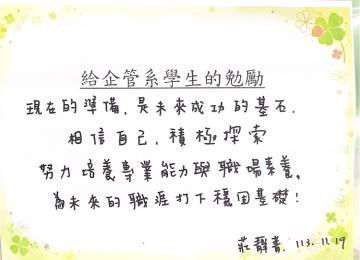 給企管系學生的勉勵
現在的準備，是未來成功的基石.
相信自己，積極探索
努力培養專業能力與職場素養，
為未來的職涯打下穩固基礎！
莊靜青. 113.11.19